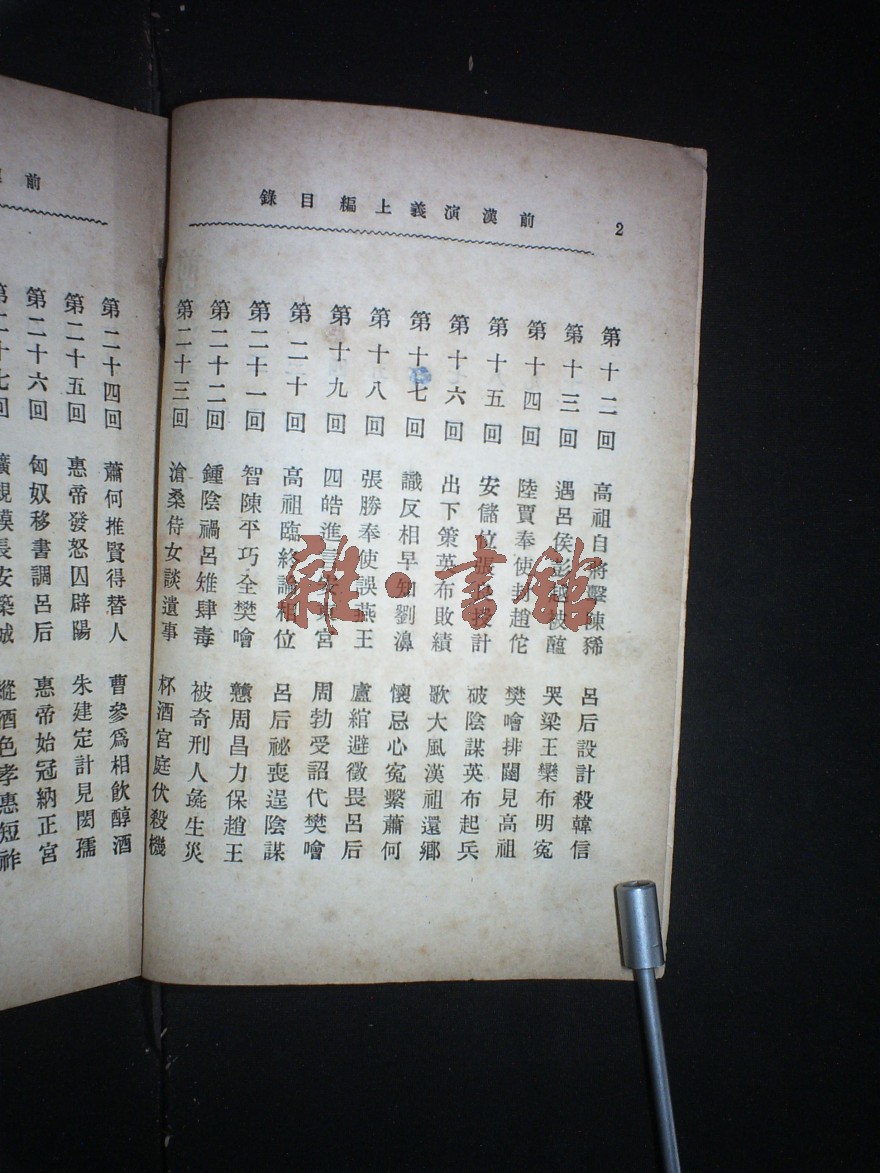 2
前漢演義上編目錄
第十二回 高祖自將擊陳豨 呂后設計殺韓信
第十三回 遇呂侯彭越被醢 哭梁王欒布明冤
第十四回 陸賈奉使封趙佗 樊噲排闥見高祖
第十五回 安儲位張良授計 破陰謀英布起兵
第十六回 出下策英布敗績 歌大風漢祖還鄉
第十七回 識反相早知劉濞 懷忌心冤繫蕭何
第十八回 張勝奉使誤燕王 盧綰避徵畏呂后
第十九回 四皓進言安宮 周勃受詔代樊噲
第二十回 高祖臨終論相位 呂后祕喪逞陰謀
第二十一回 智陳平巧全樊噲 戇周昌力保趙王
第二十二回 鍾陰禍呂雉肆毒 被奇刑人彘生災
第二十三回 滄桑侍女談遺事 杯酒宮庭伏殺機
前
第二十四回 蕭何推賢得替人 曹參爲相飲醇酒
第二十五回 惠帝發怒囚辟陽 朱建定計見閎孺
第二十六回 匈奴移書調呂后 惠帝始冠納正宮
第二十七回 廣規模長安築城 縱酒色孝惠短祚
雜·書館